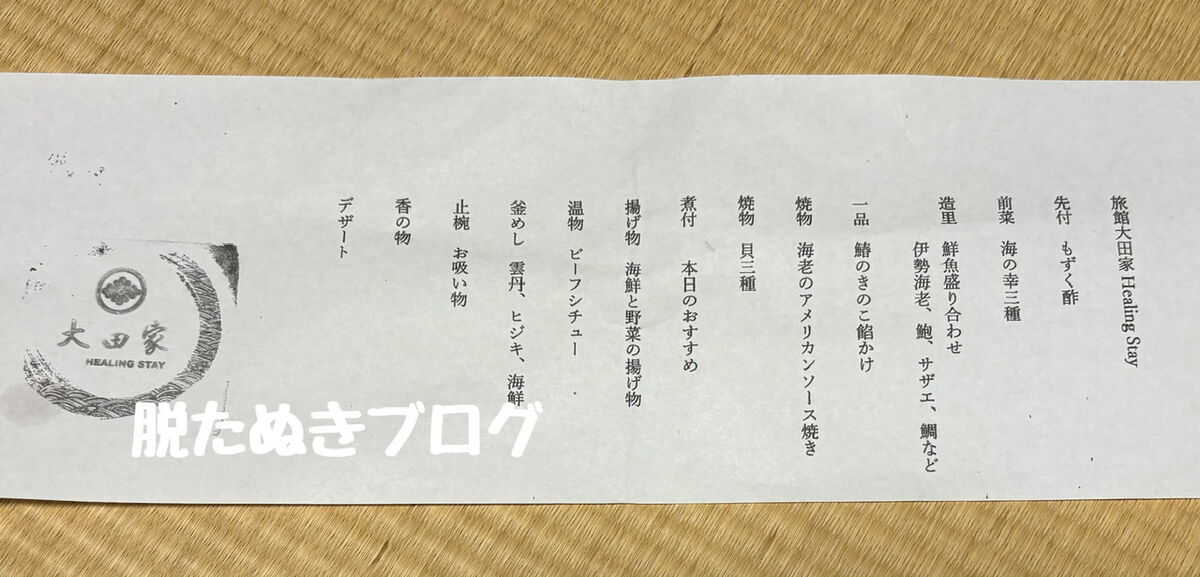 旅館大田家 Healing Stay
先付　もずく酢
前菜　海の幸三種
造里　鮮魚盛り合わせ
伊勢海老、鮑、サザエ、鯛など
一品　鰆のきのこ餡かけ
焼物　海老のアメリカンソース焼き
焼物　貝三種
煮付　本日のおすすめ
揚げ物　海鮮と野菜の揚げ物
温物　ビーフシチュー
釜めし　雲丹、ヒジキ、海鮮
止椀　お吸い物
香の物
デザート
大田家
HEALING STAY
脱たぬきブログ